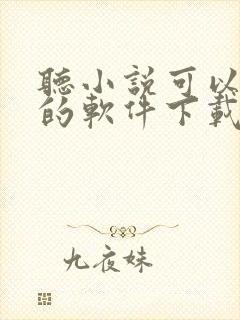 聽小説可以
的軟件下載
九夜妹